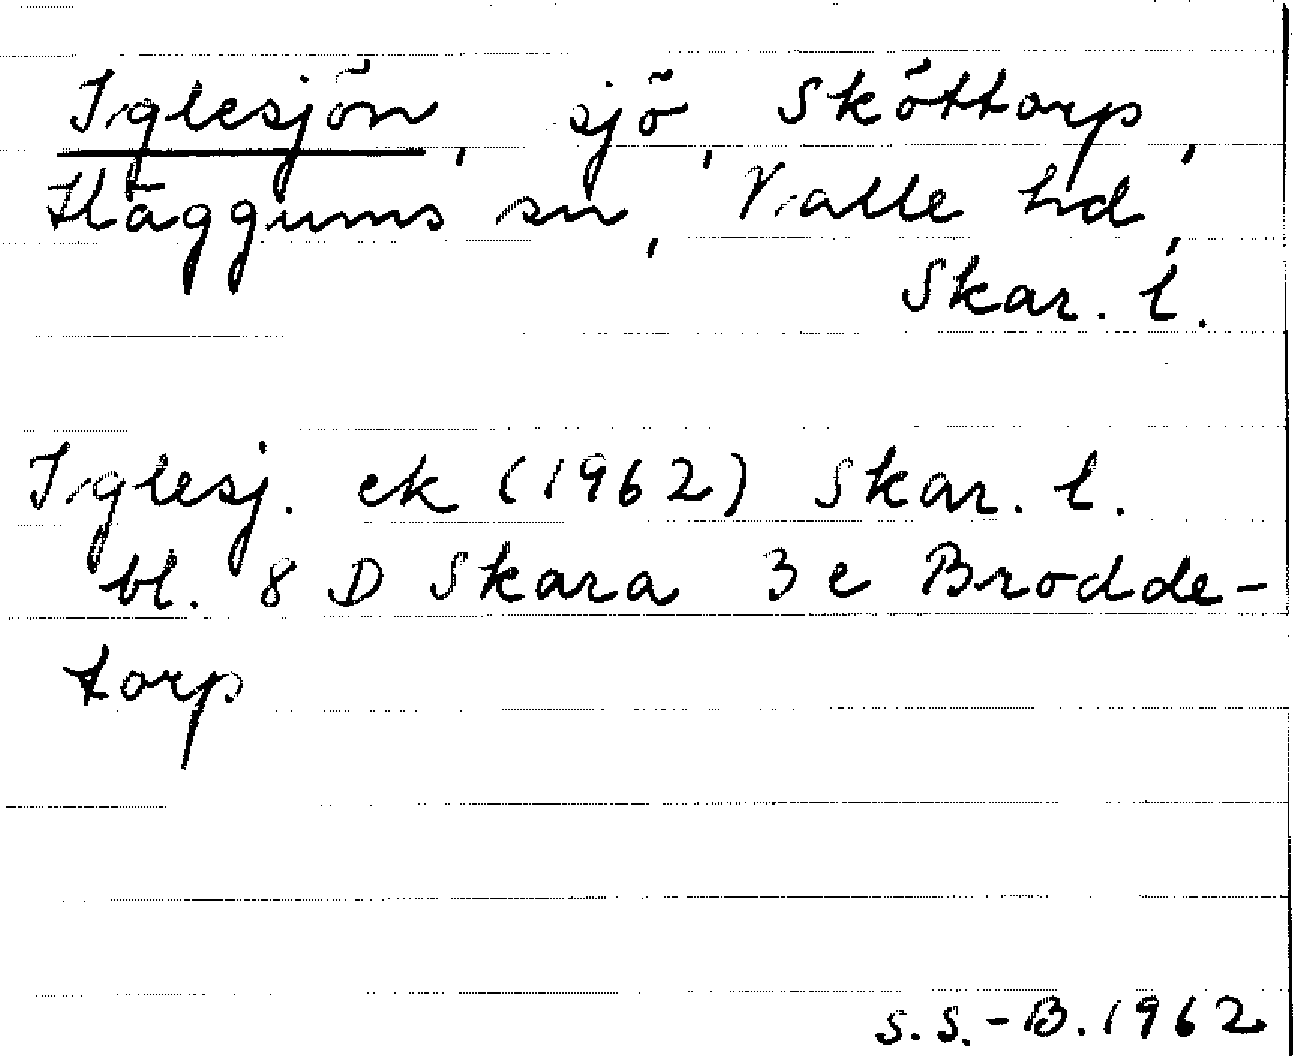 Iglesjön, sjö, Sköttorp,
Häggums sn, Valle hd,
Skar. l.
Iglesj. ek (1962) Skar. l.
bl. 8 D Skara 3 e Brodde-
torp
S.S.-B. 1962